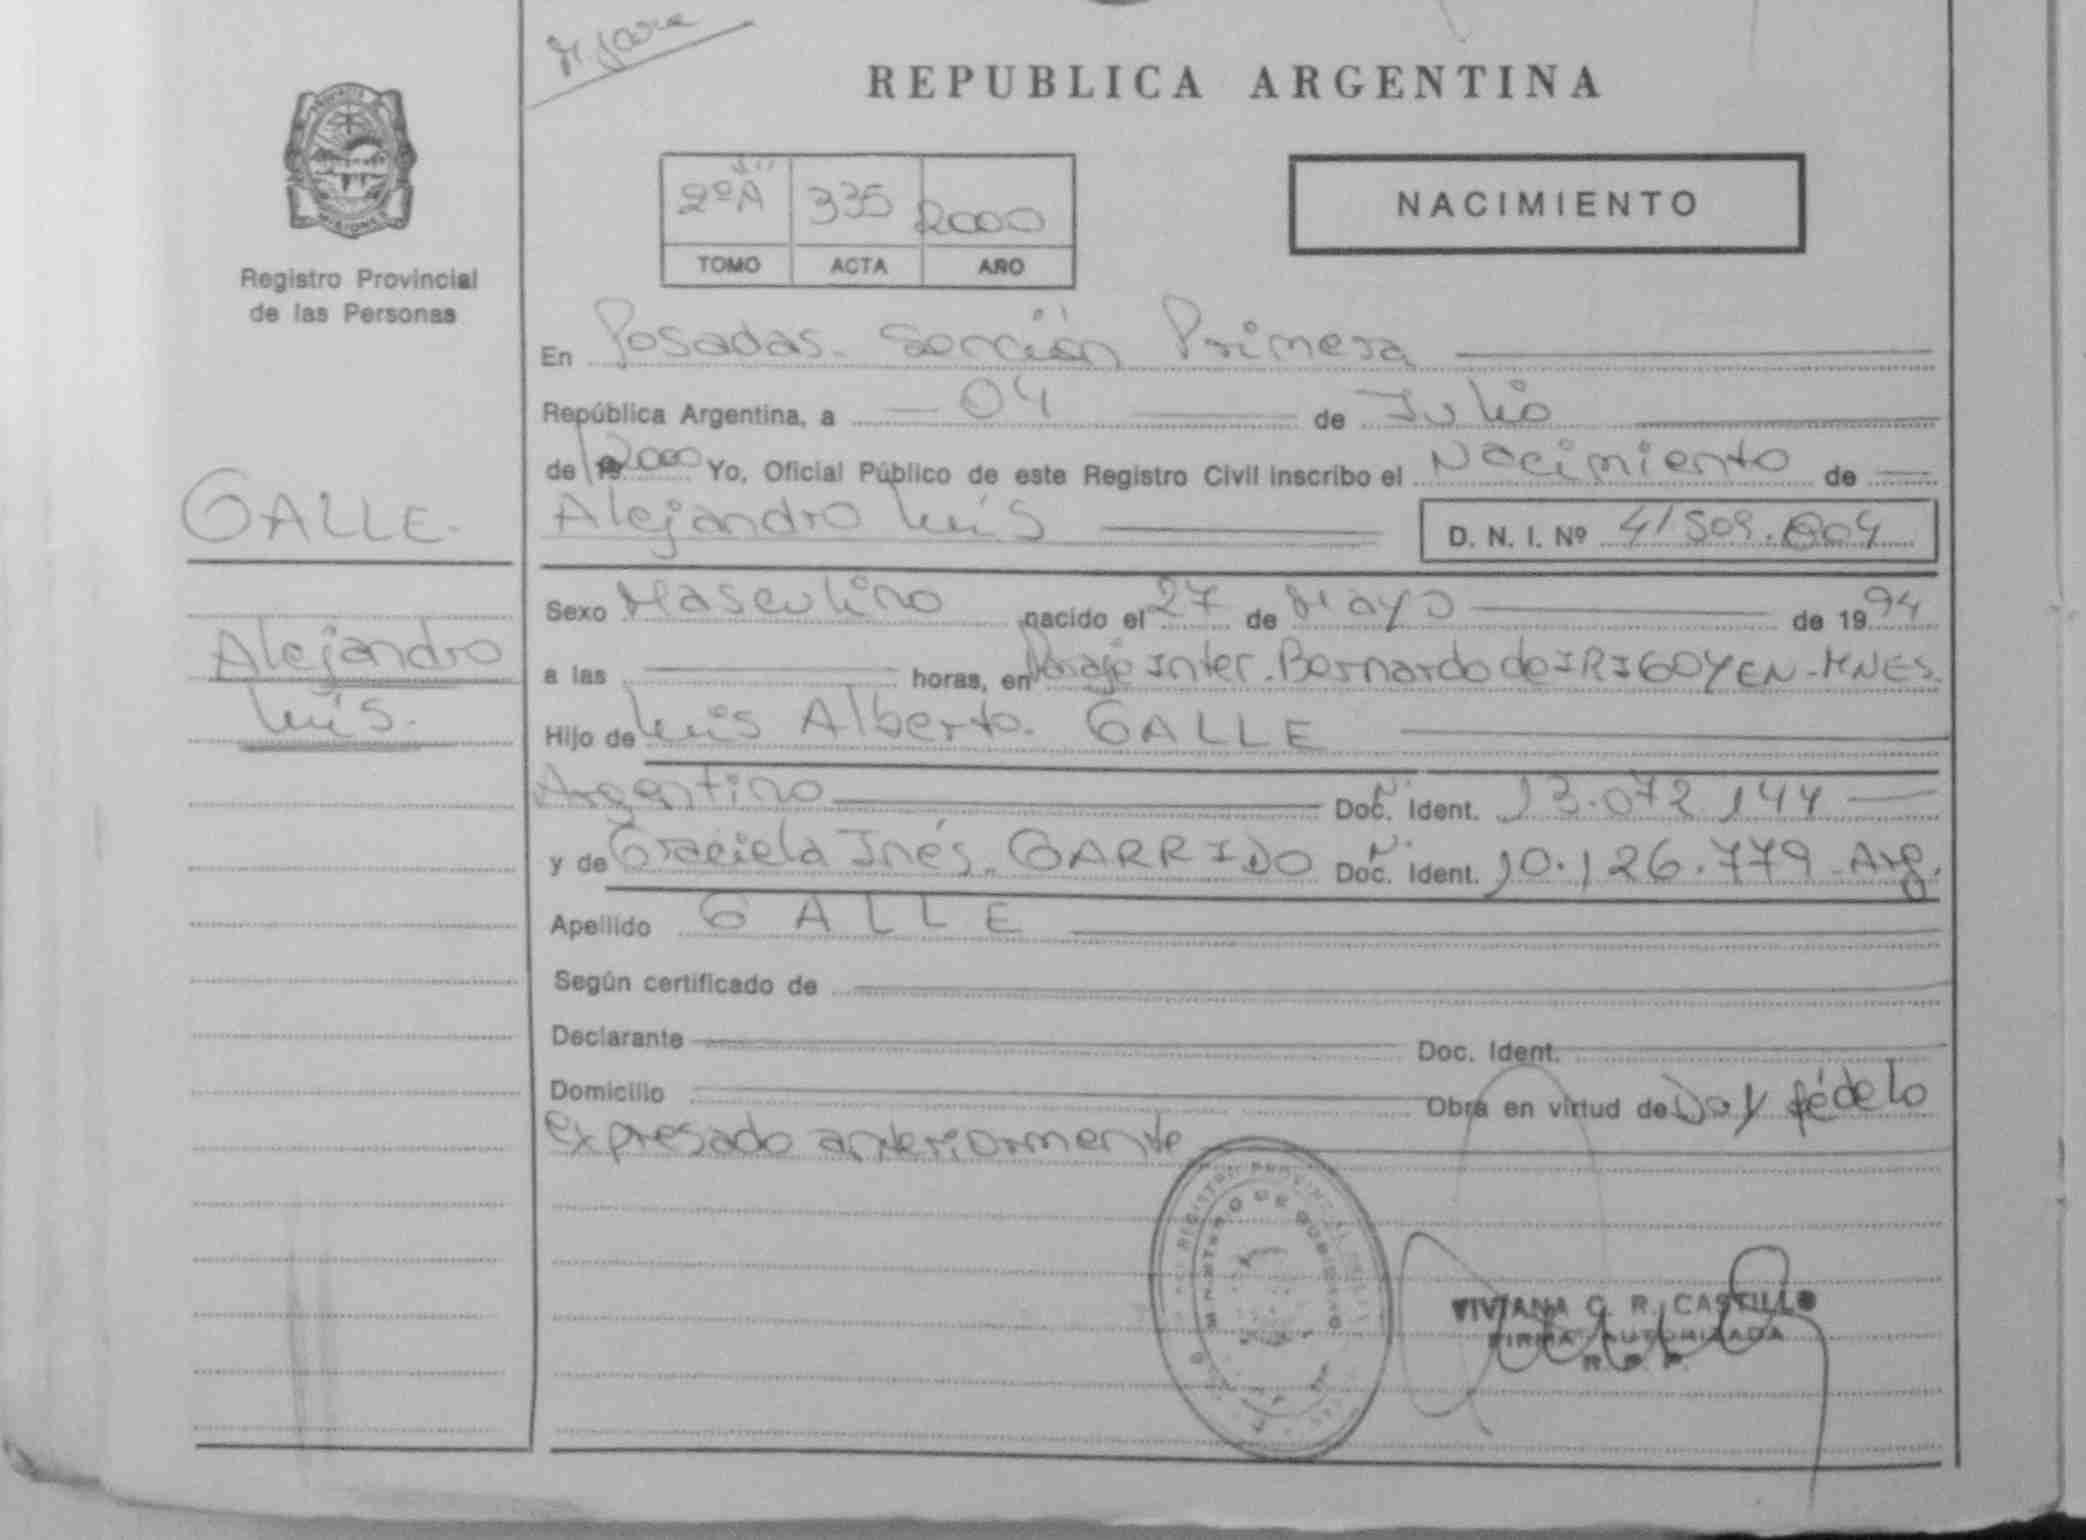 REPUBLICA ARGENTINA
Registro Provincial
de las Personas
2ºA 335 2000
TOMO ACTA AÑO
NACIMIENTO
En Posadas. Sección Primera
República Argentina, a 04 de Julio
de 19 2000 Yo, Oficial Público de este Registro Civil inscribo el Nacimiento de
Alejandro Luis D. N. I. Nº 41509.004
Sexo Masculino nacido el 27 de Mayo de 1994
a las horas, en Paraje Inter. Bernardo de IRIGOYEN - MNES.
Hijo de Luis Alberto. GALLE
Argentino Doc. Ident. 13.072.144
y de Graciela Inés. GARRIDO Doc. Ident. 10.126.779 - Arg.
Apellido GALLE
Según certificado de
Declarante Doc. Ident.
Domicilio Obra en virtud de Doy fé de lo
expresado anteriormente
GALLE.
Alejandro
Luis.
VIVIANA C. R. CASTILLO
FIRMA AUTORIZADA
R. P. P.